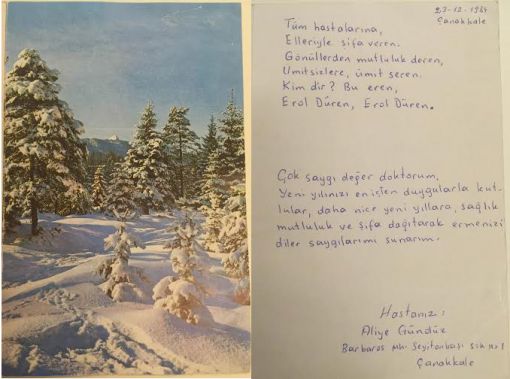 23-12-1984
Çanakkale
Tüm hastalarına,
Elleriyle şifa veren.
Gönüllerden mutluluk deren,
Ümitsizlere, ümit seren.
Kim dir? Bu eren,
Erol Düren, Erol Düren.
Çok saygı değer doktorum,
Yeni yılınızı en içten duygularla kut-
lular, daha nice yeni yıllara, sağlık
mutluluk ve şifa dağıtarak ermenizi
diler saygılarımı sunarım.
Hastanız:
Aliye Gündüz
Barbaros Mh. Seyitonbaşı Sok
Çanakkale